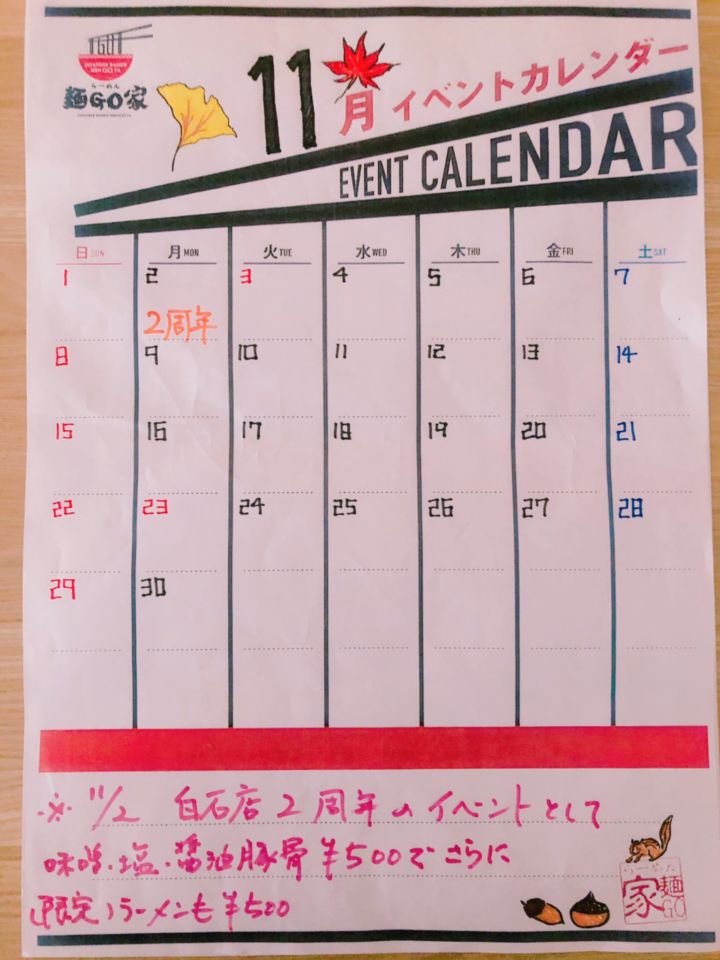 GO
JAPANESE RAMEN
MEN GO YA
らーめん
麺GO家
11月イベントカレンダー
EVENT CALENDAR
日SUN 月MON 火TUE 水WED 木THU 金FRI 土SAT
1 2 3 4 5 6 7
2周年
8 9 10 11 12 13 14
15 16 17 18 19 20 21
22 23 24 25 26 27 28
29 30
※ 11/2 白石店2周年のイベントとして
味噌・塩・醤油豚骨¥500でさらに
(限定)ラーメンも¥500
らーめん
麺GO家